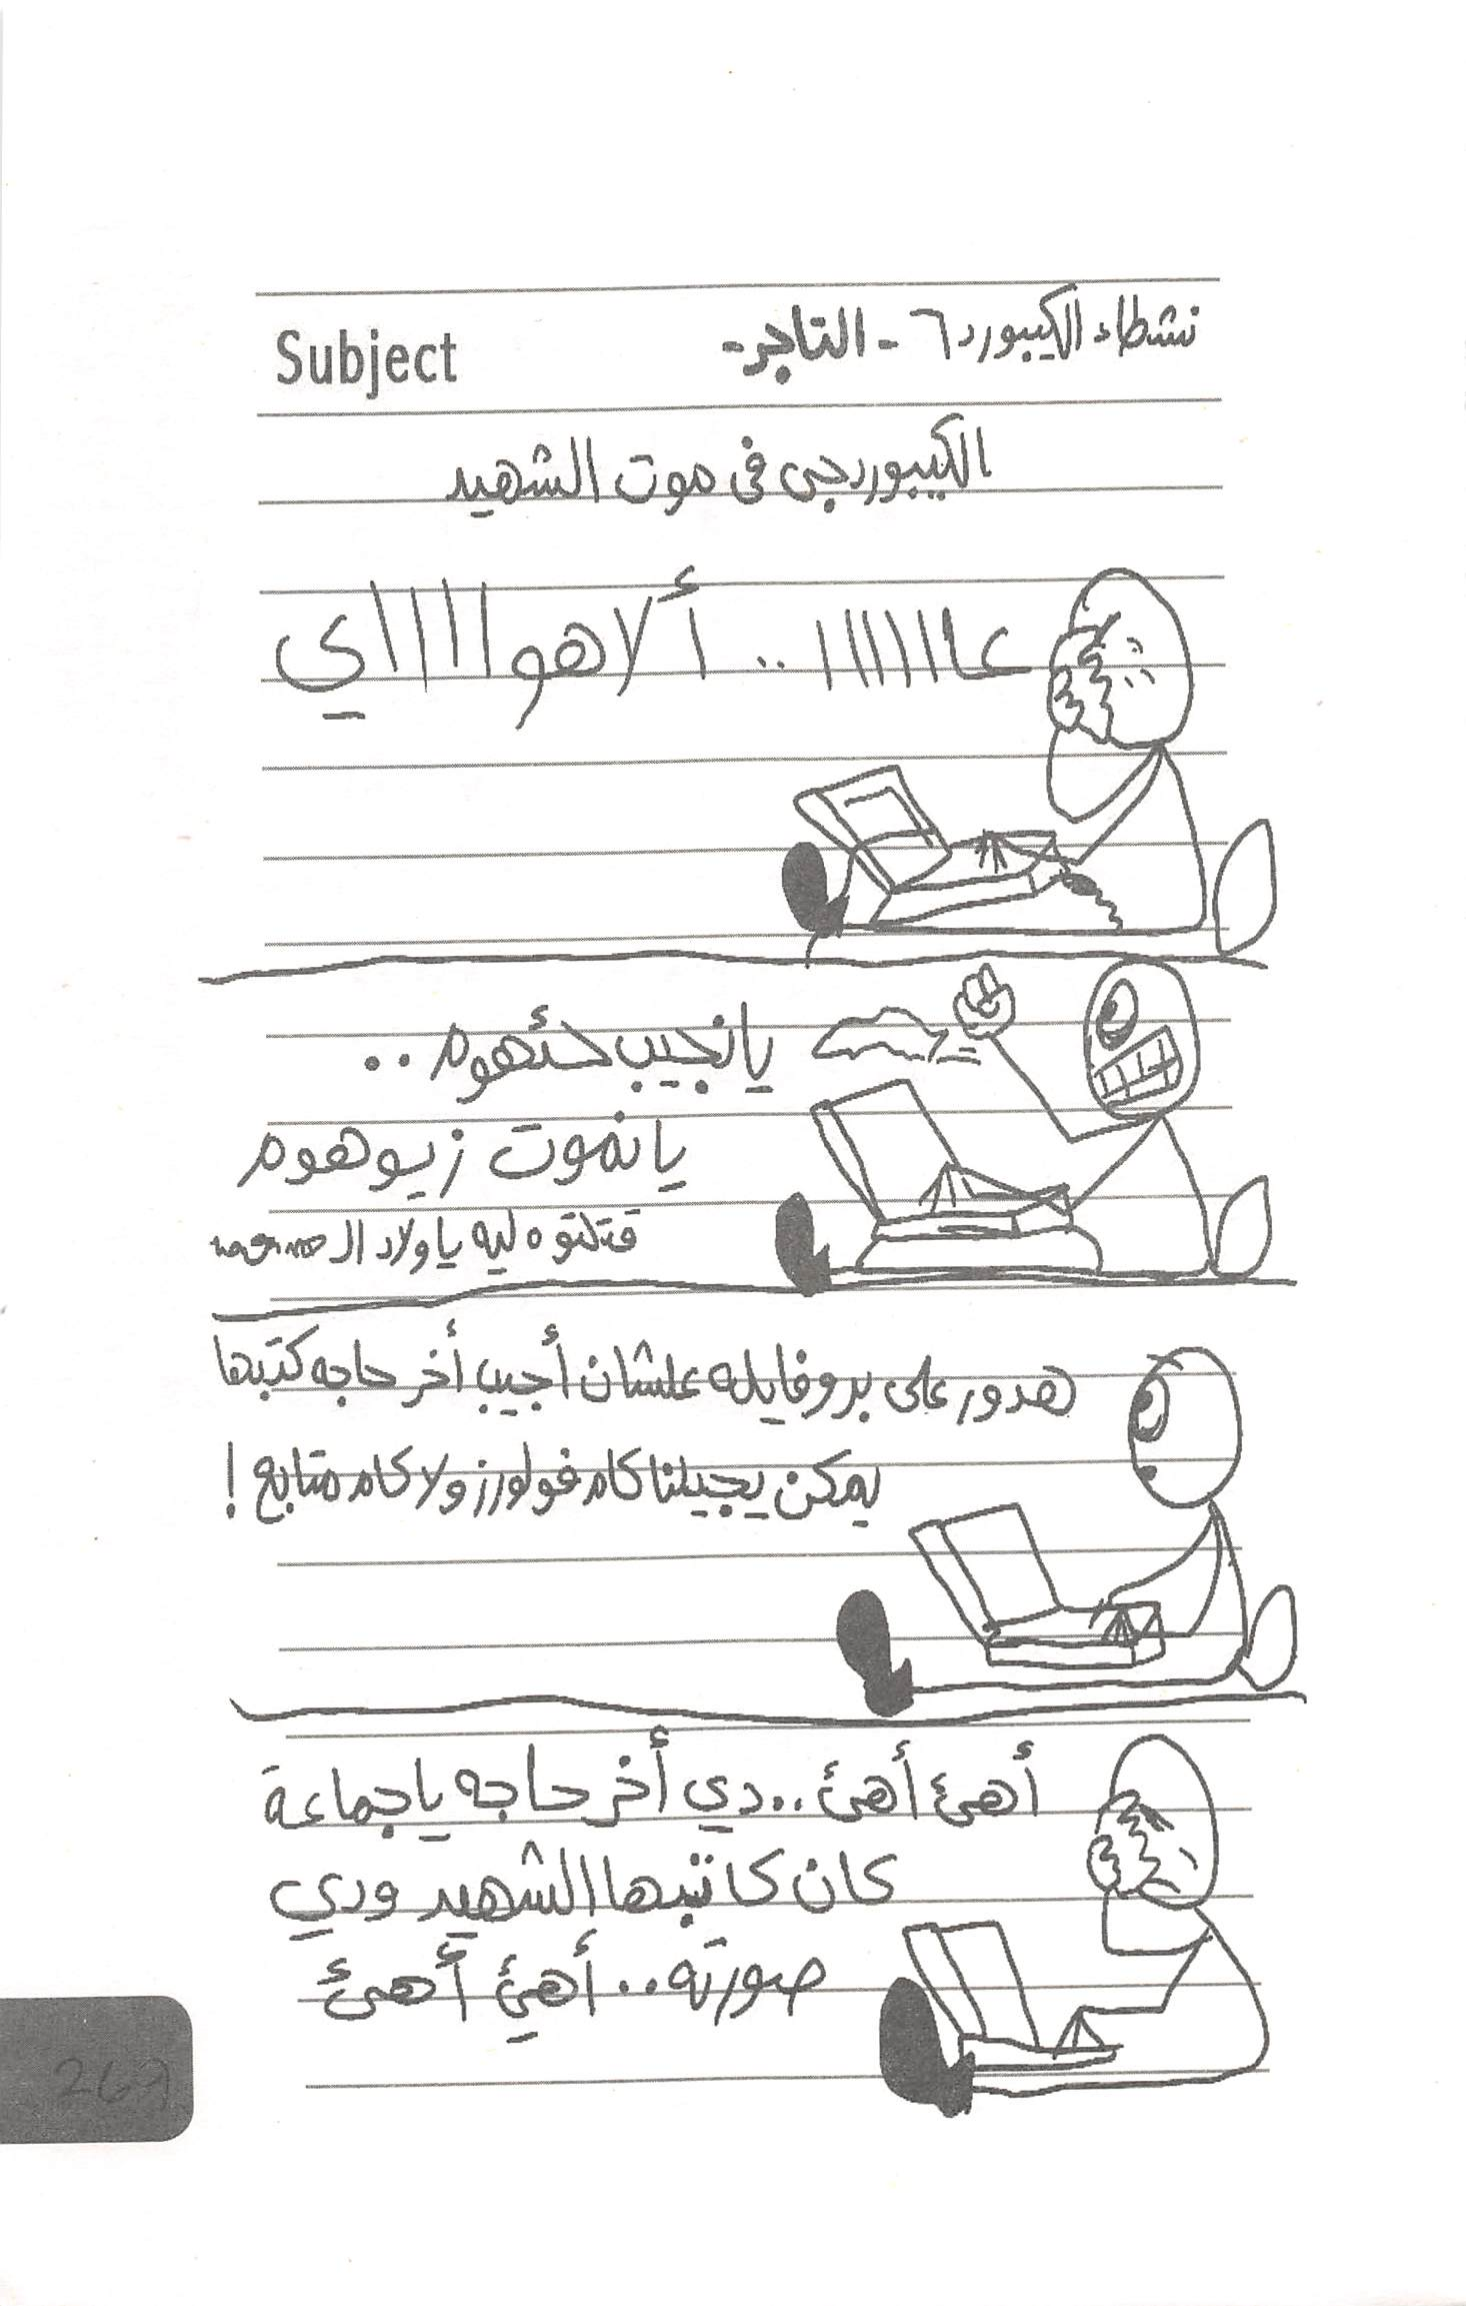 نشطاء الكيبورد ٦ - التاجر -
Subject
الكيبوردجى فى موت الشهيد
عاااااااا .. ألاهواااااي
يا نجيب حئهوم ..
يا نموت زيوهوم
قتلتوه ليه يا ولاد الـ
هدور على بروفايله علشان أجيب أخر حاجه كتبها
يمكن يجيلنا كام فولورز ولا كام متابع !
أهئ أهئ .. دي أخر حاجه يا جماعة
كان كاتبها الشهيد ودي
صورته .. أهئ أهئ
269